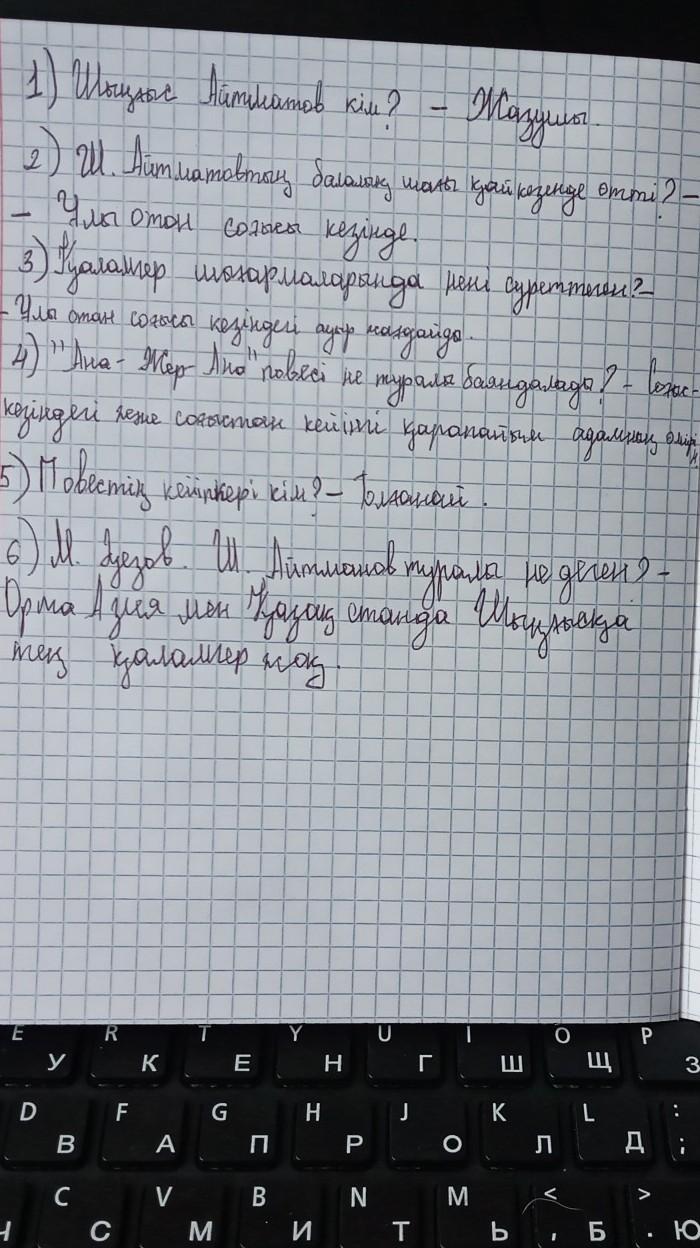 1) Шыңғыс Айтматов кім? – Жазушы.
2) Ш. Айтматовтың балалық шағы қай кезеңде өтті? –
– Ұлы отан соғысы кезінде.
3) Қаламгер шығармаларында нені суреттеген? –
– Ұлы отан соғысы кезіндегі ауыр жағдайда.
4) "Ана – Жер – Ана" повесі не туралы баяндалады? – Соғыс-
кезіндегі және соғыстан кейінгі қарапайым адамның өмірі
5) Повестің кейіпкері кім? – Толғанай.
6) М. Әуезов. Ш. Айтманов турала не деген? –
Орта Азия мен Қазақстанда Шыңғысқа
тең қаламгер жоқ.
E R T Y U I O P
У К Е Н Г Ш Щ З
D F G H J K L :
В А П Р О Л Д ;
C V B N M < >
Ч С М И Т Ь , Б . Ю